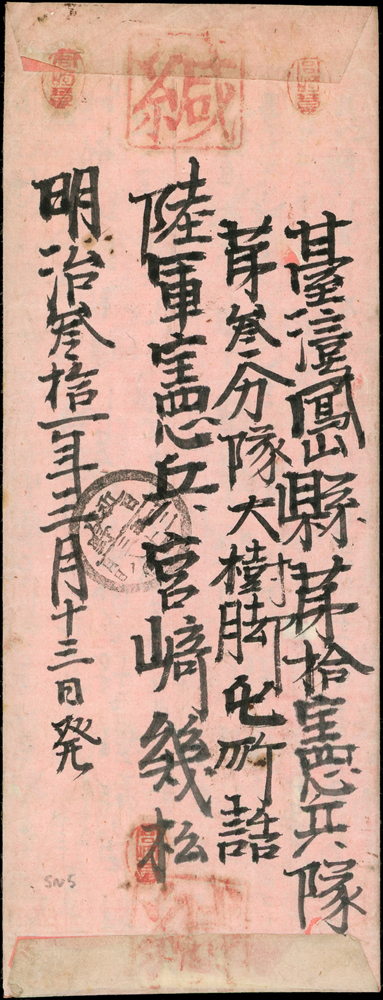 緘
臺湾鳳山縣苐拾憲兵隊
苐叄分隊大樹脚屯所詰
陸軍憲兵宮崎幾松
明治叄拾一年三月十三日発
SN5